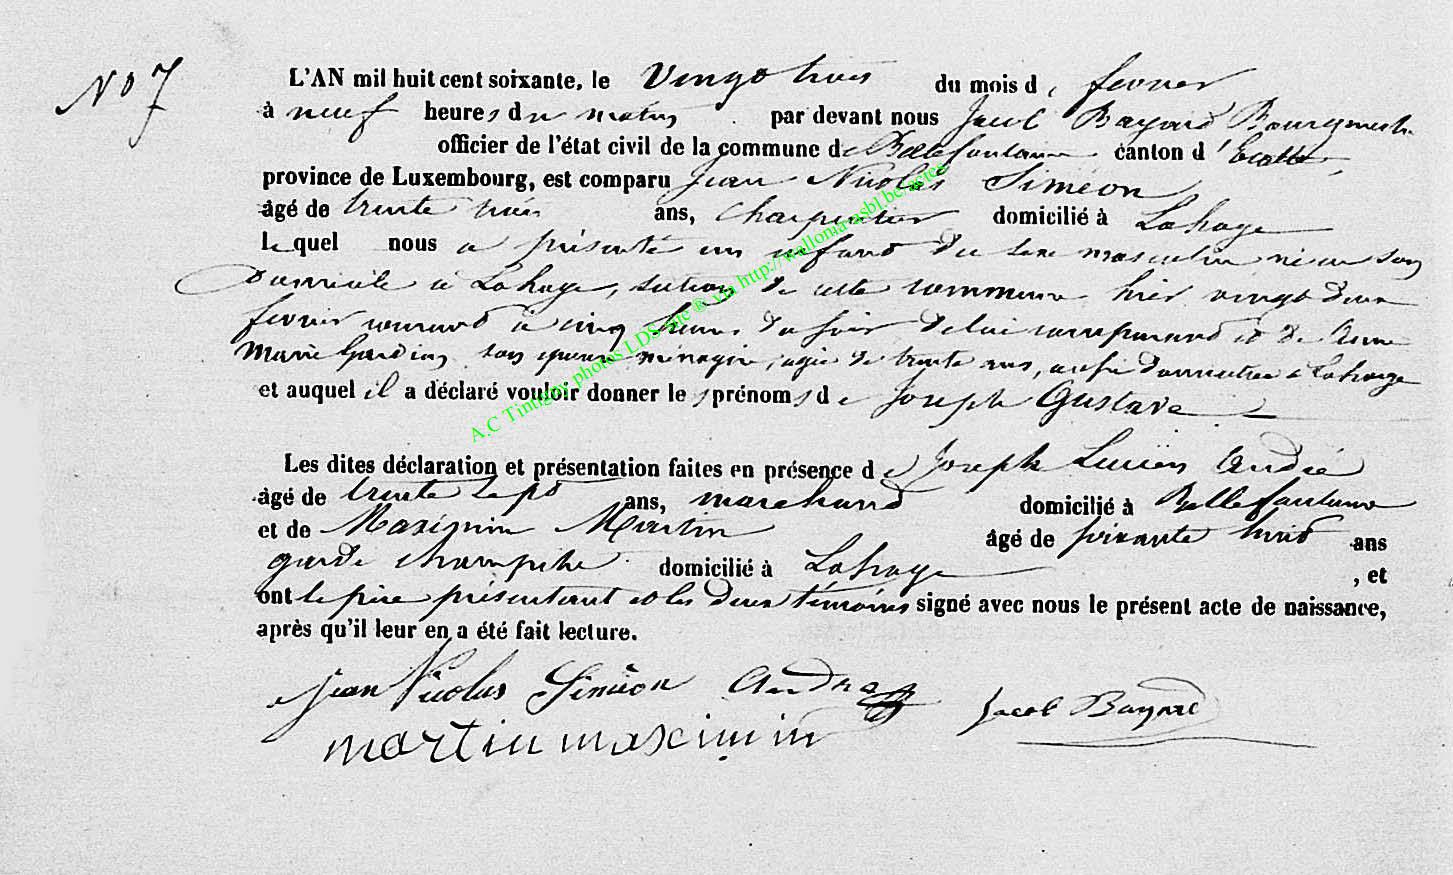 No 7
L'AN mil huit cent soixante, le Vingt trois du mois de fevrier
à neuf heures du matin par devant nous Jacob Bayard Bourgmestre
officier de l'état civil de la commune de Bellefontaine canton d'Etalle,
province de Luxembourg, est comparu Jean Nicolas Siméon
âgé de trente trois ans, charpentier domicilié à Lahage
lequel nous a présenté un enfant du sexe masculin né en son
Domicile à Lahage, section de cette commune hier vingt deux
fevrier courant à cinq heures du soir de lui comparant et de Anne
Marie Gardin son épouse ménagère, agée de trente ans, aussi domiciliée à Lahage
et auquel il a déclaré vouloir donner les prénoms de Joseph Gustave
Les dites déclaration et présentation faites en présence de Joseph Lucien André
âgé de trente sept ans, marchand domicilié à Bellefontaine
et de Maximin Martin âgé de soixante huit ans
garde champêtre domicilié à Lahage , et
ont le père présentant et les deux témoins signé avec nous le présent acte de naissance,
après qu'il leur en a été fait lecture.
Jean Nicolas Siméon André Jacob Bayard
martin maximin
A.C Tintigny photos LDS site ® via http://wallonia-asbl.be/actes